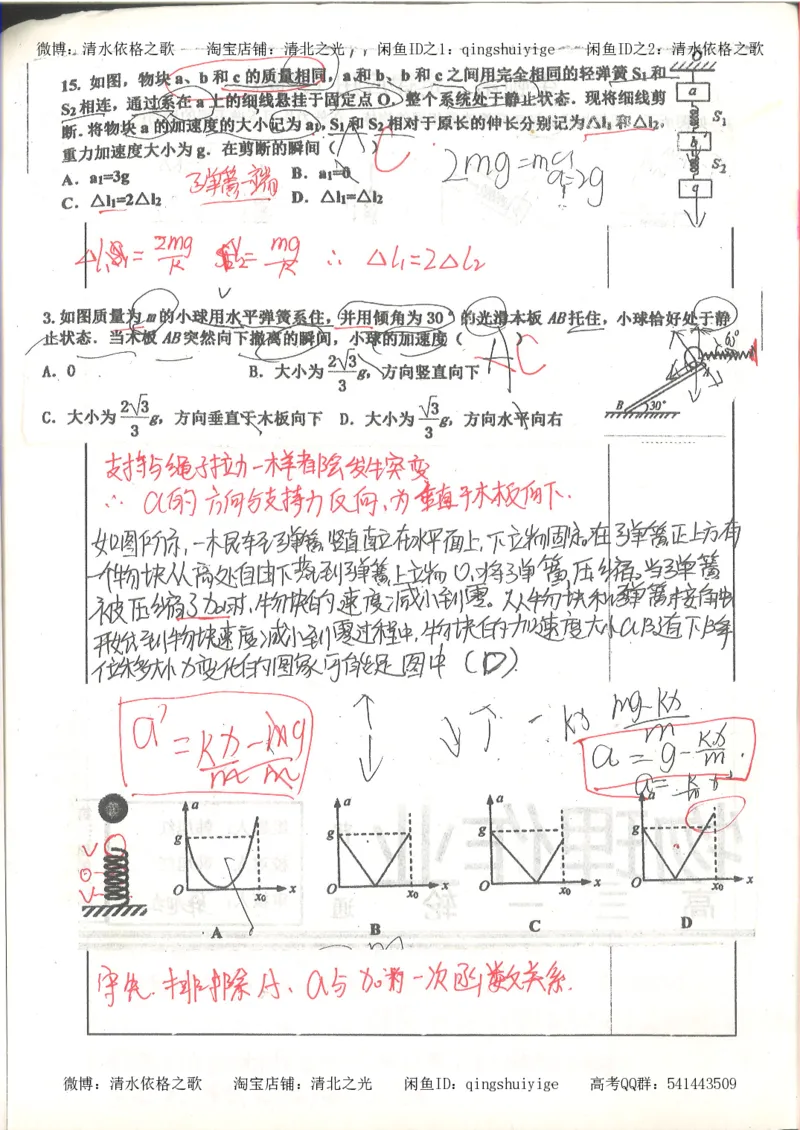 微博：清水依格之歌　　淘宝店铺：清北之光　　闲鱼ID之1：qingshuiyige　　闲鱼ID之2：清水依格之歌
15. 如图，物块 a、b 和 c 的质量相同，a 和 b、b 和 c 之间用完全相同的轻弹簧 S₁ 和
S₂ 相连，通过系在 a 上的细线悬挂于固定点 O。整个系统处于静止状态。现将细线剪
断. 将物块 a 的加速度的大小记为 a₁，S₁ 和 S₂ 相对于原长的伸长分别记为△l₁ 和△l₂，
重力加速度大小为 g．在剪断的瞬间（ A ） C
A．a₁=3g　　B．a₁=0
C．△l₁=2△l₂　　D．△l₁=△l₂
弹簧一端
2mg=ma₁
a₁=2g
O
a
S₁
b
S₂
△l₁ = 2mg/K　= mg/K　∴ △l₁=2△l₂
3. 如图质量为 m 的小球用水平弹簧系住，并用倾角为 30°的光滑木板 AB 托住，小球恰好处于静
止状态．当木板 AB 突然向下撤离的瞬间，小球的加速度（ A ） C
A．0　　B．大小为 2√3/3 g，方向竖直向下
C．大小为 2√3/3 g，方向垂直于木板向下　D．大小为 √3/3 g，方向水平向右
B 30°
支持与绳子拉力一样都会发生突变
∴ a的方向与支持力反向，为垂直于木板向下.
如图所示,一根轻弹簧竖直直立在水平面上,下端固定。在弹簧正上方有
一个物块从高处自由下落到弹簧上端O,将弹簧压缩。当弹簧
被压缩了x₀时,物块的速度减小到零。从物块和弹簧接触
开始到物块速度减小到零过程中,物块的加速度大小a随下降
位移大小x变化的图象,可能是图中（D）.
a = Kx/m − mg/m
mg-Kx/m
a = g- Kx/m .
a g O x₀ x
a g O x₀ x
a g O x₀ x
a g O x₀ x
A　B　C　D
首先.排除A、a与x为一次函数关系.
微博：清水依格之歌　　淘宝店铺：清北之光　　闲鱼ID：qingshuiyige　　高考QQ群：541443509